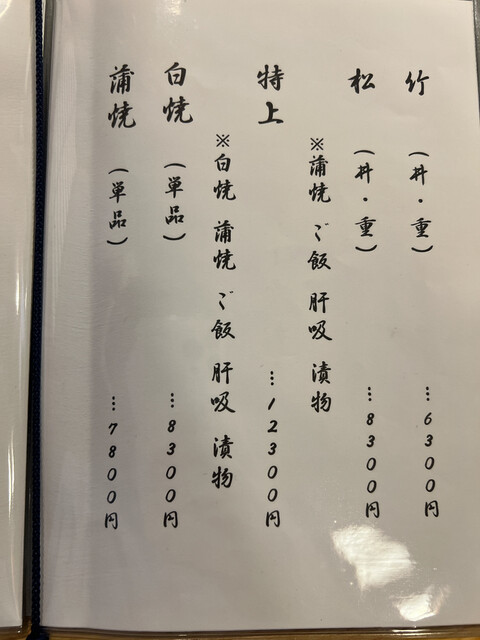 竹 (丼・重) …6300円
松 (丼・重) …8300円
※蒲焼 ご飯 肝吸 漬物
特上 …12300円
※白焼 蒲焼 ご飯 肝吸 漬物
白焼 (単品) …8300円
蒲焼 (単品) …7800円